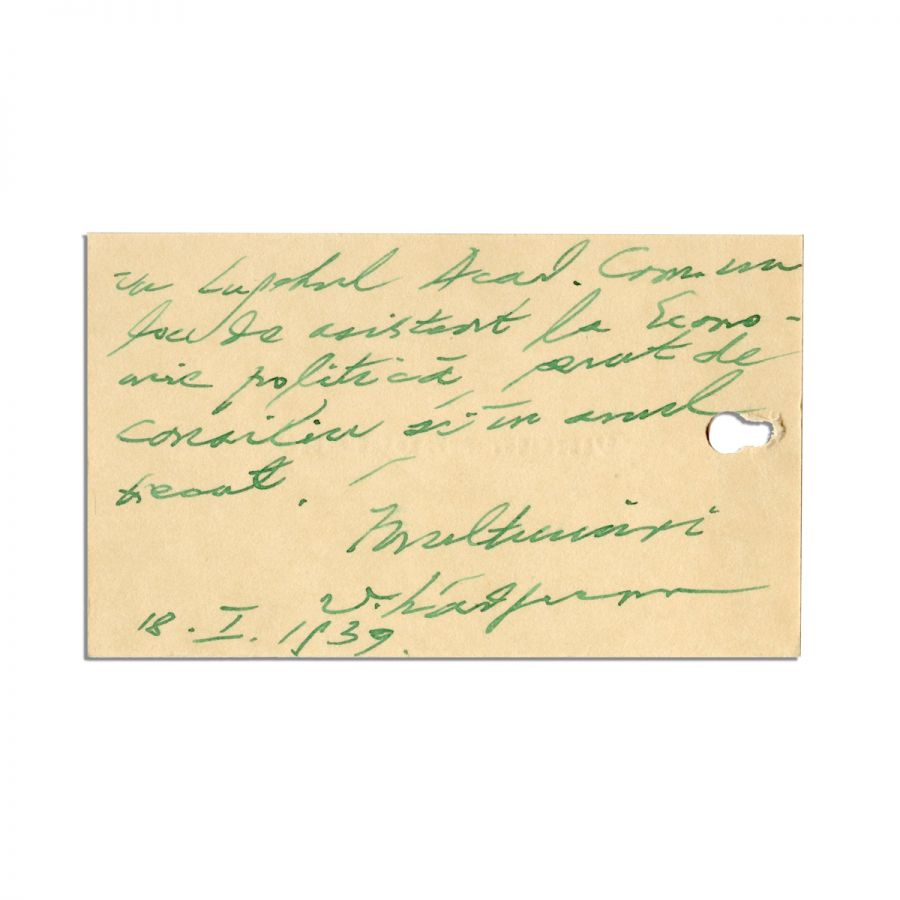 în bugetul Acad. Com. un
loc de asistent la Econo-
mie politică, cerut de
consiliu și în anul
trecut. –
Mulțumiri
V. Madgearu
18. I. 1939.